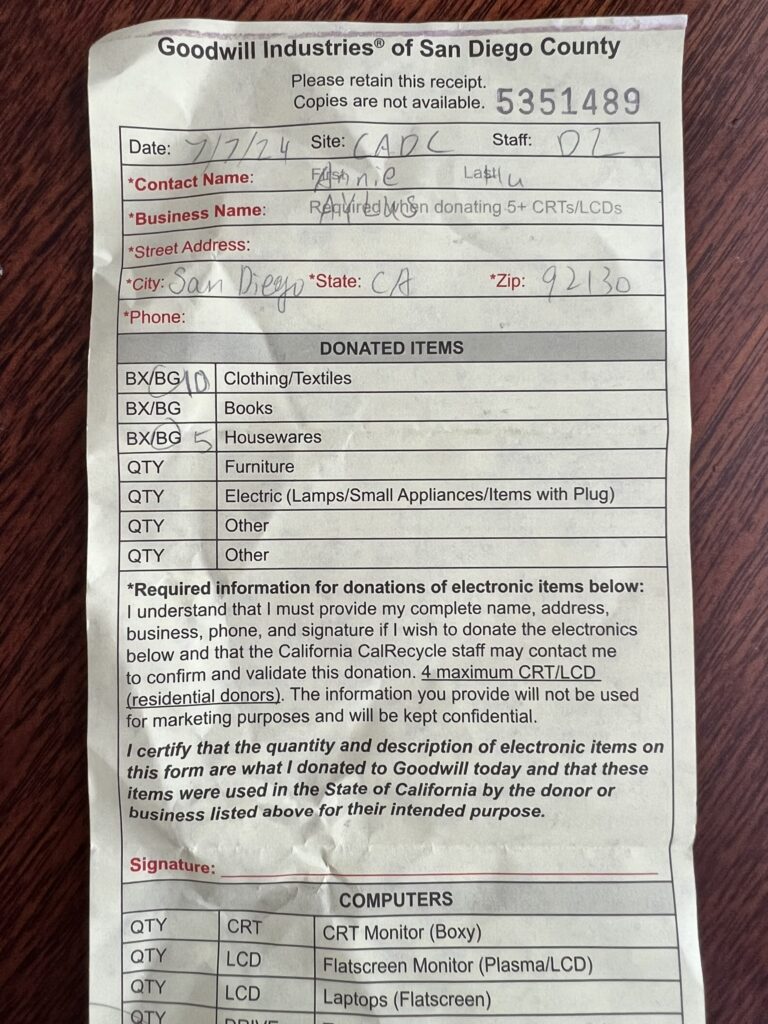 Goodwill Industries® of San Diego County
Please retain this receipt.
Copies are not available. 5351489
Date: 7/7/24 Site: CADC Staff: DZ
*Contact Name: First Annie Last Hu
*Business Name: Required when donating 5+ CRTs/LCDs
*Street Address:
*City: San Diego *State: CA *Zip: 92130
*Phone:
DONATED ITEMS
BX/BG 10 Clothing/Textiles
BX/BG Books
BX/BG 5 Housewares
QTY Furniture
QTY Electric (Lamps/Small Appliances/Items with Plug)
QTY Other
QTY Other
*Required information for donations of electronic items below:
I understand that I must provide my complete name, address,
business, phone, and signature if I wish to donate the electronics
below and that the California CalRecycle staff may contact me
to confirm and validate this donation. 4 maximum CRT/LCD
(residential donors). The information you provide will not be used
for marketing purposes and will be kept confidential.
I certify that the quantity and description of electronic items on
this form are what I donated to Goodwill today and that these
items were used in the State of California by the donor or
business listed above for their intended purpose.
Signature:
COMPUTERS
QTY CRT CRT Monitor (Boxy)
QTY LCD Flatscreen Monitor (Plasma/LCD)
QTY LCD Laptops (Flatscreen)
QTY